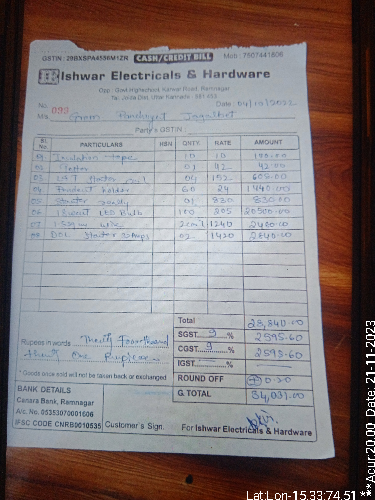 GSTIN : 29BXSPA4556M1ZR CASH/CREDIT BILL Mob : 7607441806
Ishwar Electricals & Hardware
Opp : Govt Highschool, Karwar Road, Ramnagar
Tq. Joida Dist. Uttar Kannada - 581 453
No. 093 Date : 04/10/2022
M/s. Gram Panchayat Jagalbet
Party's GSTIN :
Sl. No. PARTICULARS HSN QNTY. RATE AMOUNT
01 Insulation tape 10 10 100.00
02 01 42 42.00
03 04 152 608.00
04 Pendent holder 60 24 1440.00
05 Starter 01 830 830.00
06 LED Bulb 100 205 20500.00
07 1.5 sqmm wire 2 coil 1240 2480.00
08 DOL Starter 02 1420 2840.00
Total 28,840.00
SGST 9 % 2595.60
CGST 9 % 2595.60
IGST %
Rupees in words Thirty Four thousand
thirty One Rupees
* Goods once sold will not be taken back or exchanged
ROUND OFF 0.20
G. TOTAL 34,031.00
BANK DETAILS
Canara Bank, Ramnagar
A/c. No. 05353070001606
IFSC CODE CNRB0010535
Customer's Sign.
For Ishwar Electricals & Hardware
Lat:Lon-15.33:74.51 **Acur:20.00, Date: 21-11-2023